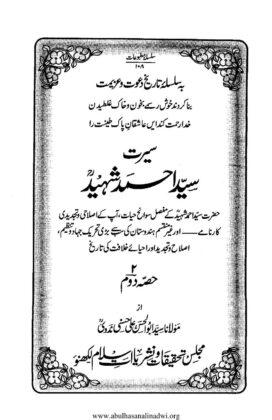 سلسلۂ مطبوعات
۱۰۹
بہ سلسلۂ تاریخ دعوت و عزیمت
بنا کردند خوش رسمے بخون و خاک غلطیدن
خدا رحمت کند ایں عاشقانِ پاک طینت را
سیرت
سید احمد شہیدؒ
حضرت سید احمد شہیدؒ کے مفصل سوانح حیات، آپ کے اصلاحی و تجدیدی
کارنامے ــــ اور غیر منقسم ہندوستان کی سب سے بڑی تحریک جہاد و تنظیم،
اصلاح و تجدید اور احیائے خلافت کی تاریخ
۲
حصہ دوم
از
مولانا سید ابوالحسن علی حسنی ندوی
مجلس تحقیقات و نشریات اسلام لکھنؤ
www.abulhasanalinadwi.org